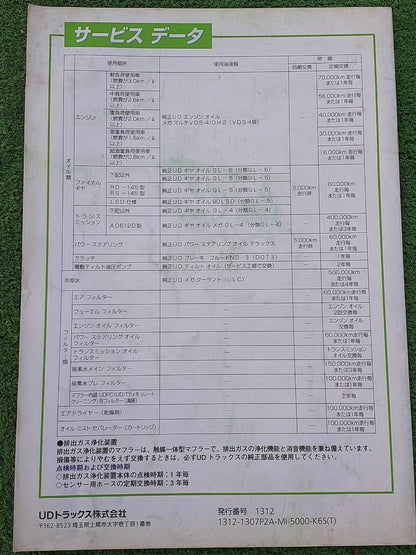 サービス データ
使用個所 使用油液類 時 期
初期交換 定期交換
オイル類
エンジン
軽負荷使用車
(燃費が3.0km／ℓ以上)
70,000km走行毎
または1年毎
中負荷使用車
(燃費が2.6km／ℓ以上)
56,000km走行毎
または1年毎
重負荷使用車
(燃費が2.0km／ℓ以上)
純正UD エンジン オイル
メガ マルチVDS4/DH-2 (VDS-4級)
－
40,000km走行毎
または1年毎
激重負荷使用車
30,000km走行毎
または1年毎
超激重負荷使用車
(燃費が0.8km／ℓ以上)
16,000km走行毎
または1年毎
ファイナル ギヤ
下記以外 純正UD ギヤ オイル GL－6 (分類GL－6)
RD－145型 純正UD ギヤ オイル GL－5 (分類GL－5)
RS－145型 純正UD ギヤ オイル GL－5 (分類GL－5)
LSD仕様 純正UD ギヤ オイル 90LSD (分類GL－5)
5,000km走行時
60,000km走行毎
または1年毎
トランスミッション
下記以外 純正UD ギヤ オイル GL－4 (分類GL－4)
AD612D型 純正UD ギヤ オイル メガ GL－4 (分類GL－4)
－
400,000km走行毎
または3年毎
パワー ステアリング 純正UD パワー ステアリング オイル デラックス 5,000km走行時 60,000km走行毎
または1年毎
クラッチ 純正UD ブレーキ フルード NO－3 (DOT3) － 1年毎
電動ティルト油圧ポンプ 純正UD ティルト オイル (サービス工場で交換) － 2年毎
冷却水 純正UD メガ クーラント (LLC) － 500,000km走行毎
または4年毎
フィルター類
エア フィルター － － 60,000km走行毎
または1年毎
フューエル フィルター － － エンジン オイル
2回交換毎
エンジン オイル フィルター － － エンジン オイル
交換毎
パワー ステアリング オイル フィルター － － 60,000km走行毎
または1年毎
トランスミッション オイル フィルター － － トランスミッション
オイル交換毎
尿素水メイン フィルター － － 150,000km走行毎
または3年毎
尿素水プレ フィルター － － 100,000km走行毎
または1年毎
マフラー内蔵UDPC(UDパティキュレート
クリーニング)用フィルター(清掃) － － 2年毎
エアドライヤー (乾燥剤) － － 100,000km走行毎
または1年毎
オイル ミスト セパレーター (カートリッジ) － － 100,000km走行毎
または1年毎
●排出ガス浄化装置
排出ガス浄化装置のマフラーは、触媒一体型マフラーで、排出ガスの浄化機能と消音機能を兼ね備えています。
損傷等によりやむをえず交換するときは、必ずUD トラックスの純正部品を使用してください。
点検時期および交換時期
◇排出ガス浄化装置本体の点検時期：1年毎
◇センサー用ホースの定期交換時期：3年毎
UDトラックス株式会社
〒362-8523 埼玉県上尾市大字壱丁目1番地
発行番号 1312
1312-1307P2A-MI-5000-K6S(T)